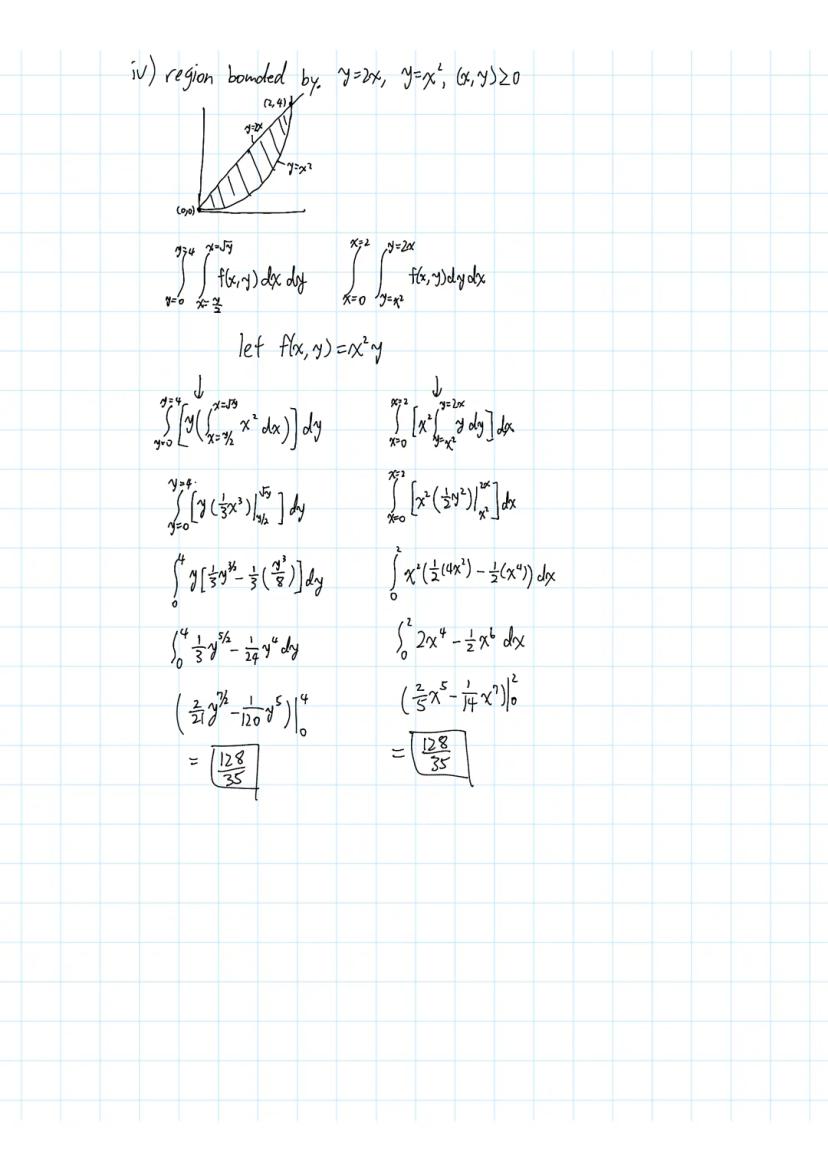 iv) region bounded by. y=2x, y=x², (x,y)≥0
(2,4)
y=2x
y=x²
(0,0)
∫_{y=0}^{y=4} ∫_{x=y/2}^{x=√y} f(x,y) dx dy   ∫_{x=0}^{x=2} ∫_{y=x²}^{y=2x} f(x,y) dy dx
let f(x,y) = x²y
↓ ↓
∫_{y=0}^{y=4} [y(∫_{x=y/2}^{x=√y} x² dx)] dy   ∫_{x=0}^{x=2} [x² ∫_{y=x²}^{y=2x} y dy] dx
∫_{y=0}^{y=4} [y(1/3 x³)|_{y/2}^{√y}] dy   ∫_{x=0}^{x=2} [x²(1/2 y²)|_{x²}^{2x}] dx
∫_0^4 y[1/3 y^{3/2} - 1/3(y³/8)] dy   ∫_0^2 x²(1/2(4x²) - 1/2(x⁴)) dx
∫_0^4 1/3 y^{5/2} - 1/24 y⁴ dy   ∫_0^2 2x⁴ - 1/2 x⁶ dx
(2/21 y^{7/2} - 1/120 y⁵)|_0^4   (2/5 x⁵ - 1/14 x⁷)|_0^2
= 128/35   = 128/35